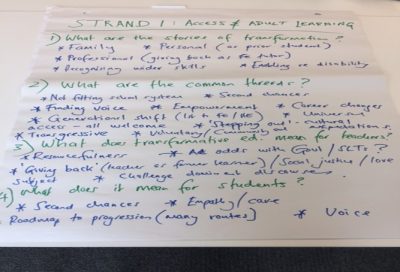 STRAND 1: ACCESS & ADULT LEARNING
1) What are the stories of transformation?
* Family * Personal (as prior student)
* Professional (giving back as tutor)
* Recognising wider skills * Enabling re disability
2) What are the common threads?
* Not fitting school system * Second chances
* Finding voice * Empowerment * Career changes
* Generational shift * Universal
access - all welcome * 'Stepping out' - cultural
* Transgressive * Voluntary/Community expansions
3) What does transformative ed. mean for teachers?
* Resourcefulness * At odds with Gov/SLTs?
* Giving back (teacher as former learner)/Social justice/love
subject * Challenge dominant discourses
4) What does it mean for students?
* Second chances * Empathy/care
Roadmap to progression (many routes) * Voice